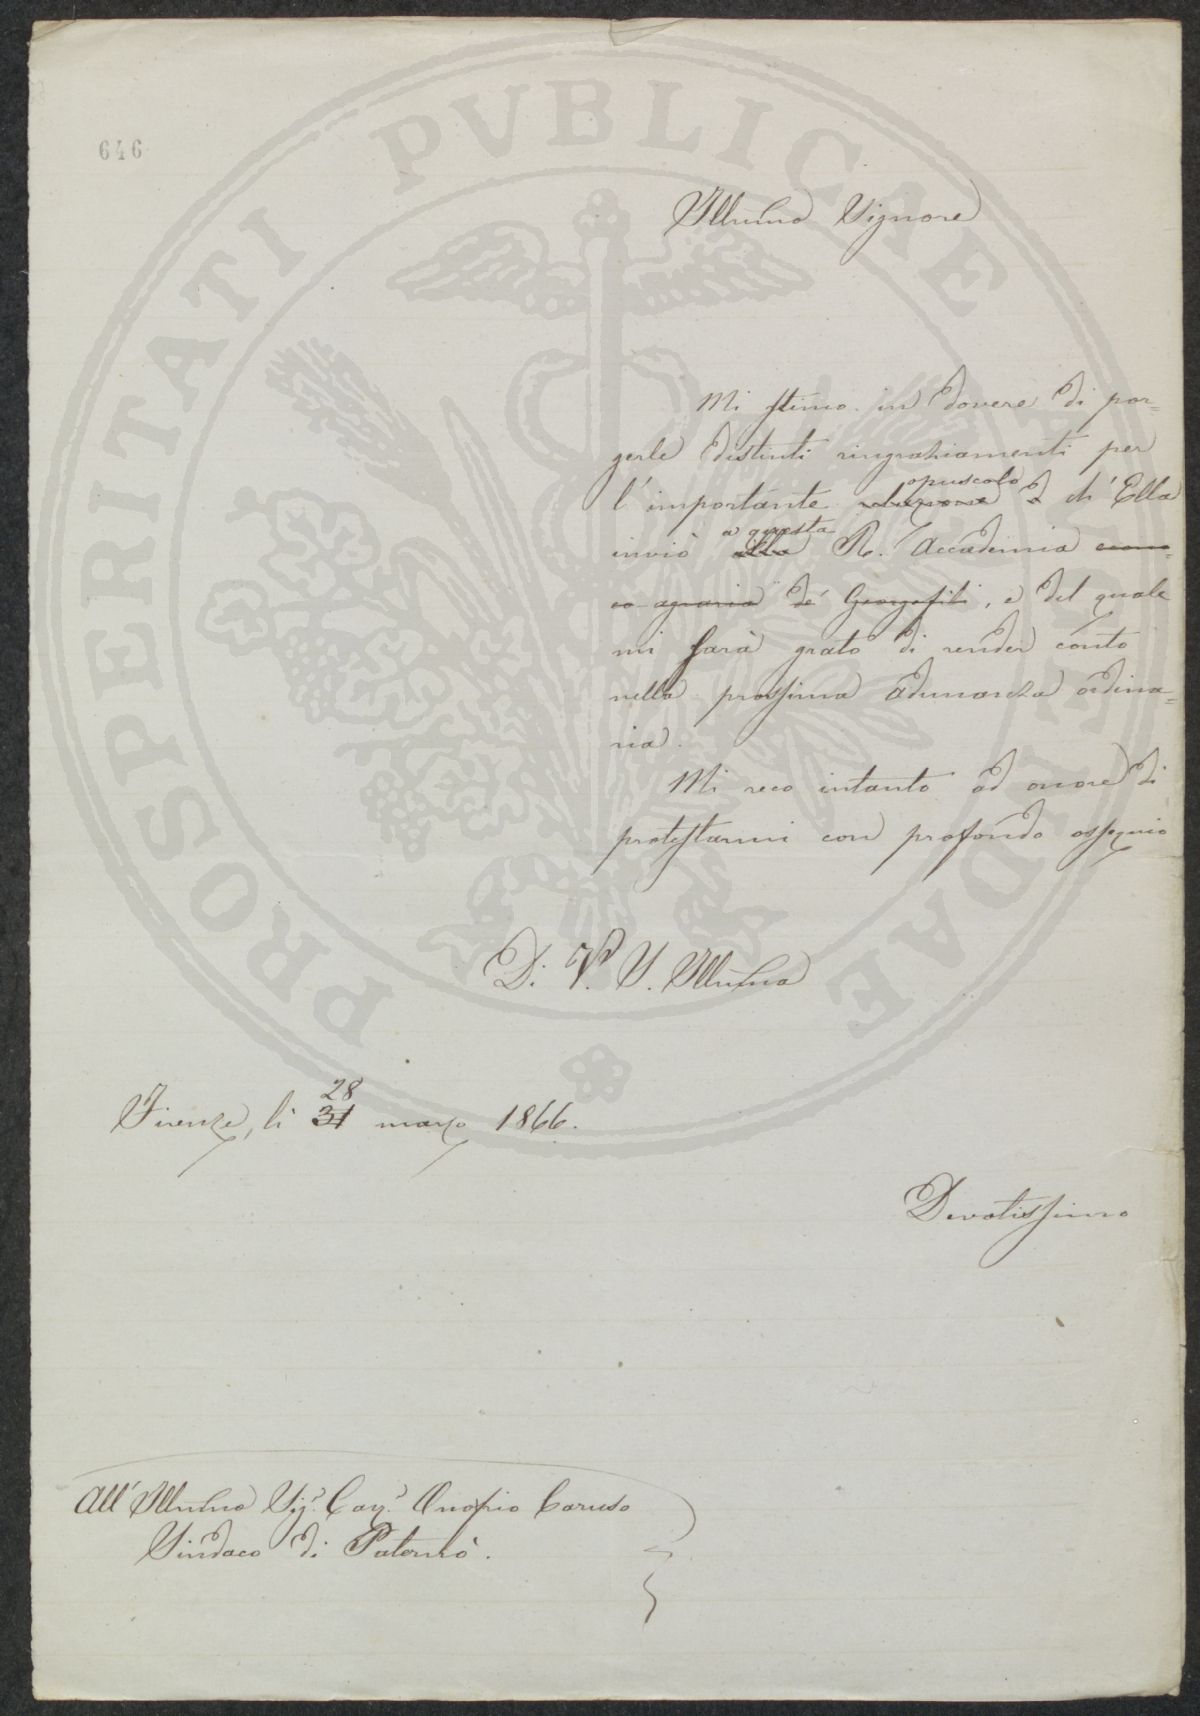 646
PROSPERITATI PVBLICAE
Illm̃o Signore
Mi stimo in dovere di por=
gerle distinti ringraziamenti per
opuscolo
l'importante relazione ch'Ella
a questa
inviò alla R. Accademia econo=
co agraria de' Georgofili, e del quale
mi farà grato di render conto
nella prossima adunanza ordina=
ria.
Mi reco intanto ad onore di
protestarmi con profondo ossequio
Di V. S. Illm̃a
28
Firenze, lì 31 marzo 1866.
Devotissimo
All' Illm̃o Sig.r Cav.r Onofrio Caruso
Sindaco di Paternò.